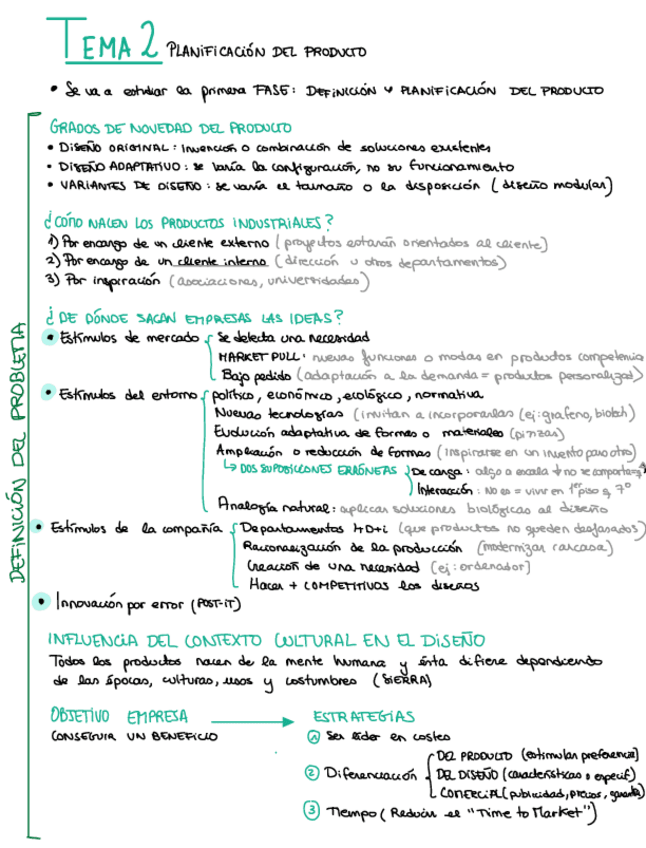 TEMA 2 PLANIFICACIÓN DEL PRODUCTO
• Se va a estudiar la primera FASE: DEFINICIÓN Y PLANIFICACIÓN DEL PRODUCTO
DEFINICIÓN DEL PROBLEMA
GRADOS DE NOVEDAD DEL PRODUCTO
• DISEÑO ORIGINAL: Invención o combinación de soluciones existentes
• DISEÑO ADAPTATIVO: se varía la configuración, no su funcionamiento
• VARIANTES DE DISEÑO: se varía el tamaño o la disposición (diseño modular)
¿CÓMO NACEN LOS PRODUCTOS INDUSTRIALES?
1) Por encargo de un cliente externo (proyectos estarán orientados al cliente)
2) Por encargo de un cliente interno (dirección u otros departamentos)
3) Por inspiración (asociaciones, universidades)
¿DE DÓNDE SACAN EMPRESAS LAS IDEAS?
• Estímulos de mercado Se detecta una necesidad
MARKET PULL: nuevas funciones o modas en productos competencia
Bajo pedido (adaptación a la demanda = productos personalizad)
• Estímulos del entorno político, económico, ecológico, normativa
Nuevas tecnologías (invitan a incorporarlas (ej: grafeno, biotech)
Evolución adaptativa de formas o materiales (pinzas)
Ampliación o reducción de formas (Inspirarse en un invento para otro)
↳ DOS SUPOSICIONES ERRÓNEAS De carga: algo a escala ↓ no se comporta =
Interacción: No es = vivir en 1er piso q 7º
Analogía natural: aplicar soluciones biológicas al diseño
• Estímulos de la compañía Departamentos I+D+i (que productos no queden desfasados)
Racionalización de la producción (modernizar carcasa)
Creación de una necesidad (ej: ordenador)
Hacer + COMPETITIVOS los diseños
• Innovación por error (POST-IT)
INFLUENCIA DEL CONTEXTO CULTURAL EN EL DISEÑO
Todos los productos nacen de la mente humana y ésta difiere dependiendo
de las épocas, culturas, usos y costumbres (SIERRA)
OBJETIVO EMPRESA → ESTRATEGIAS
CONSEGUIR UN BENEFICIO
① Ser líder en costes
② Diferenciación DEL PRODUCTO (estimular preferencia)
DEL DISEÑO (características o especif)
COMERCIAL (publicidad, precios, garantía)
③ Tiempo (Reducir el "Time to Market")